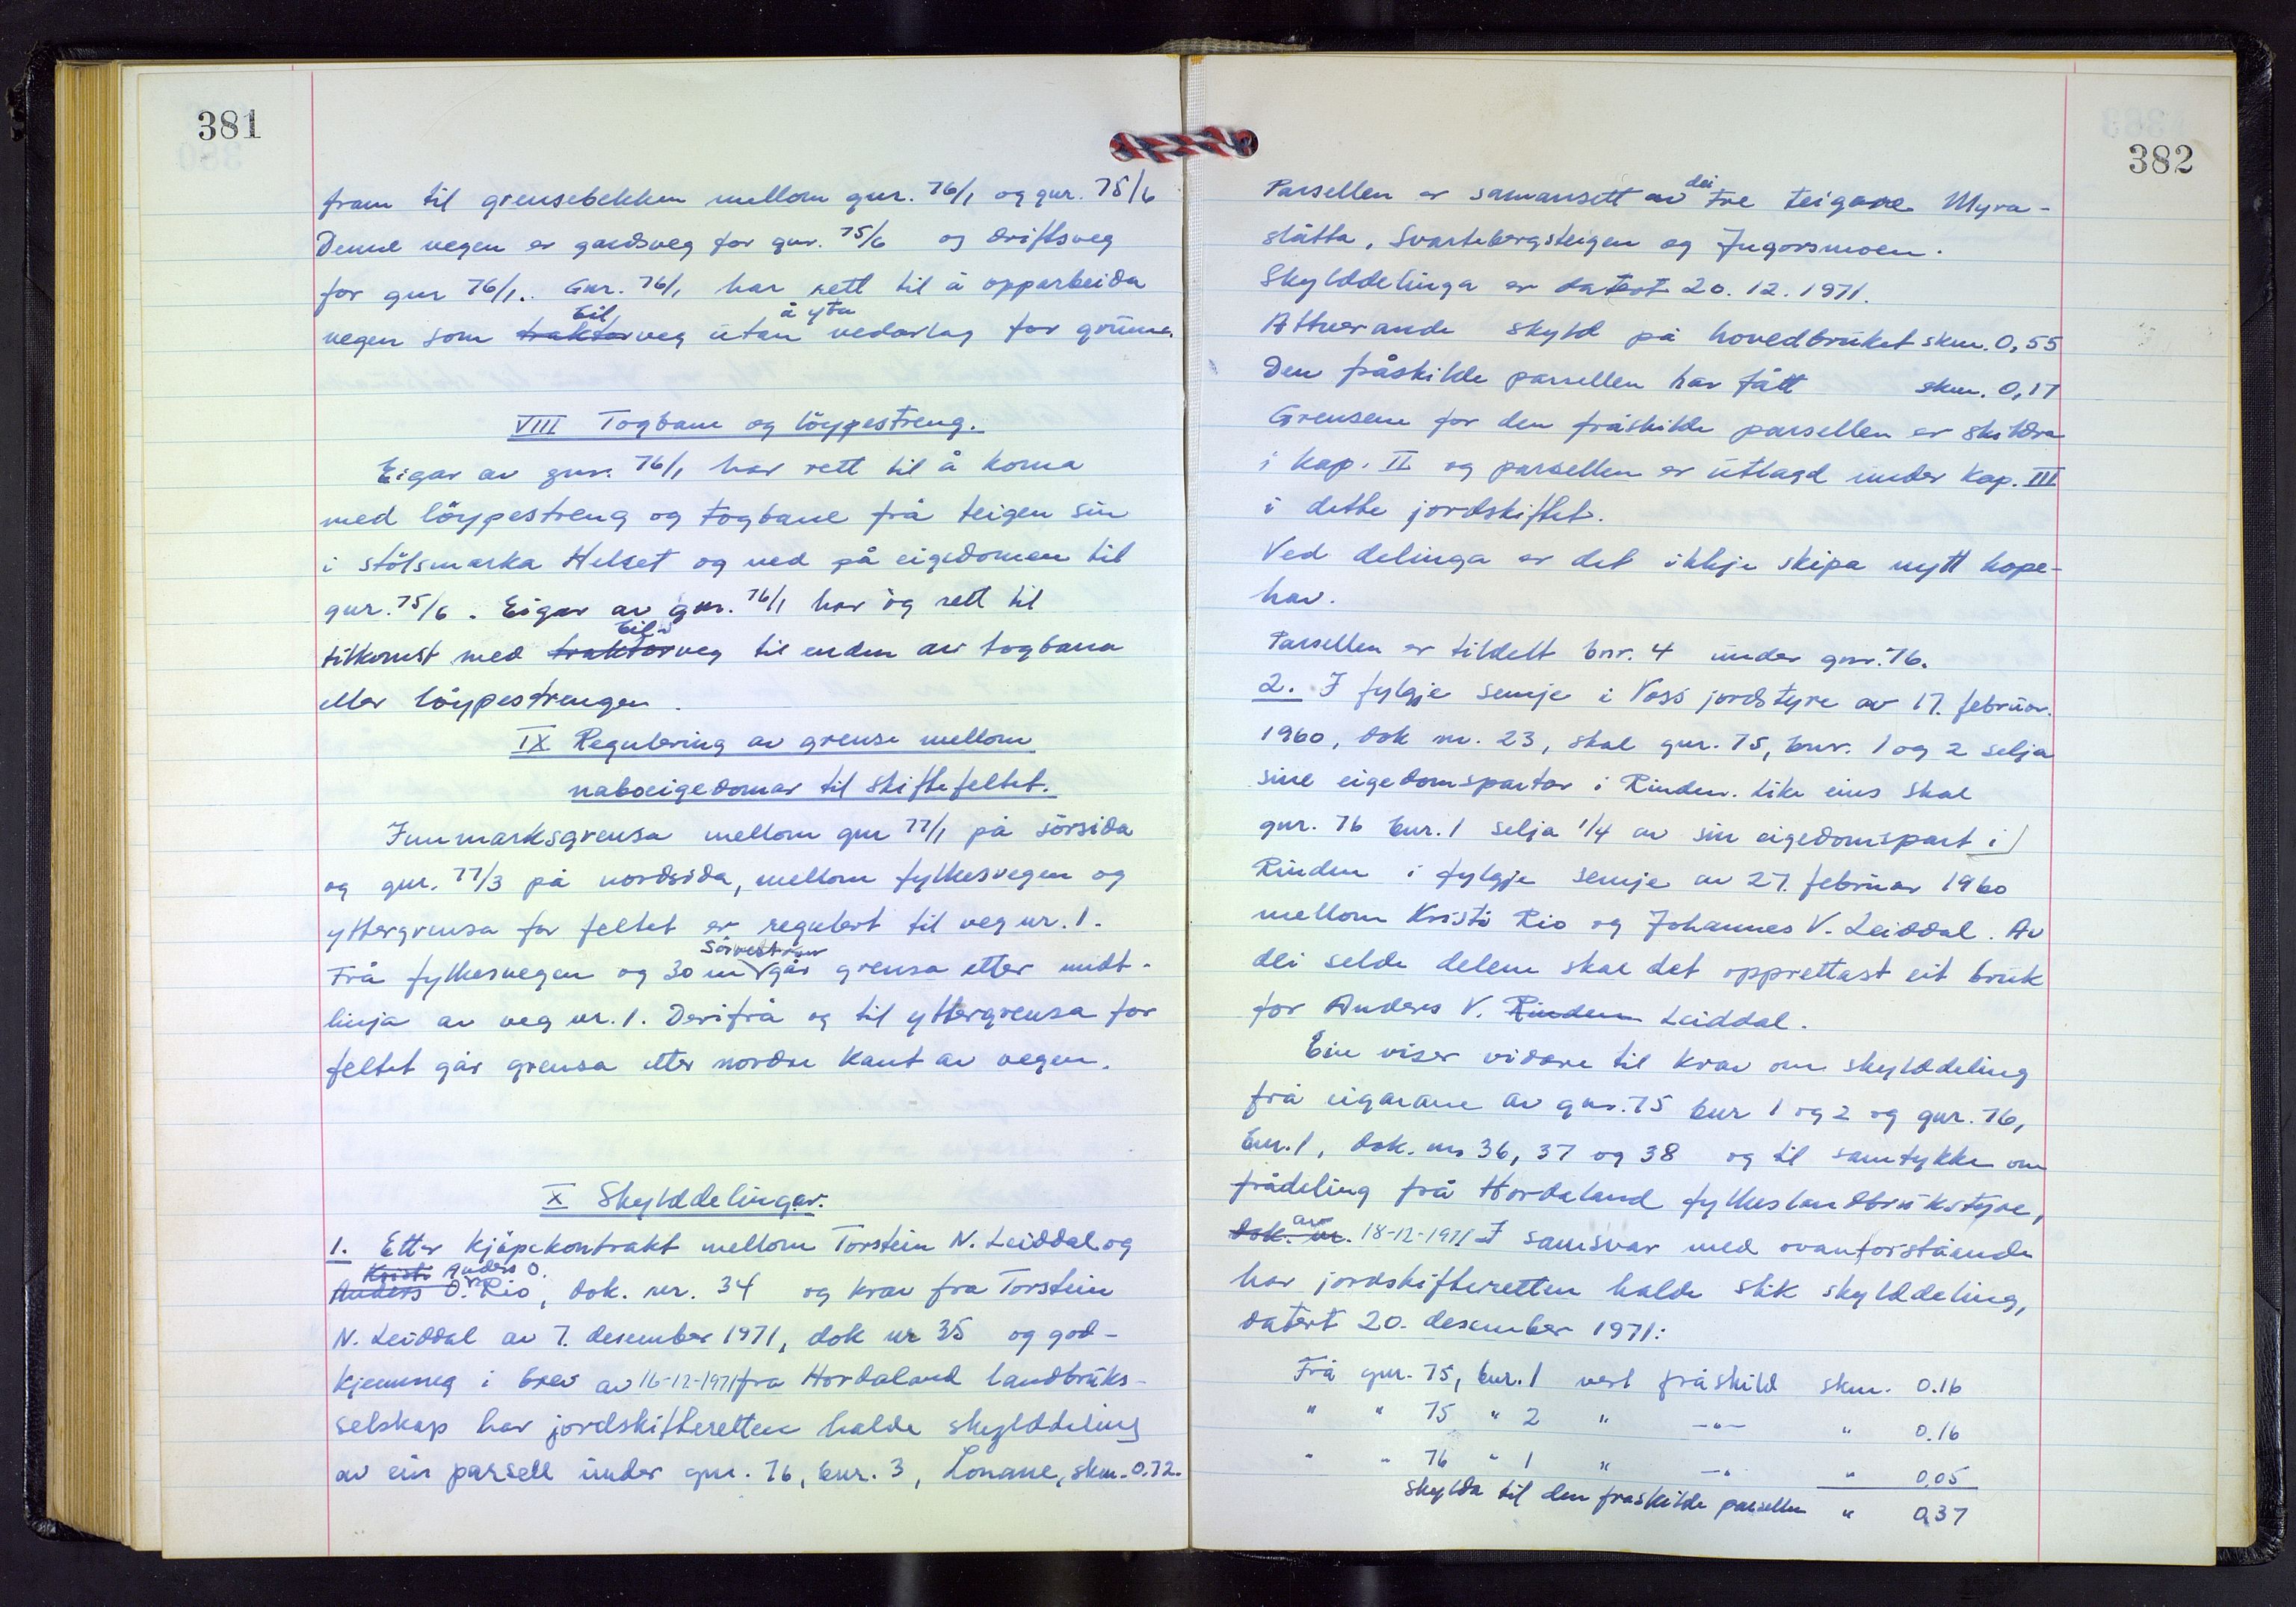 381
fram til grensebekken mellom gnr. 76/1 og gnr. 75/6
Denne vegen er gardsveg for gnr. 75/6 og driftsveg
for gnr 76/1. Gnr. 76/1 har rett til å opparbeida
bil å yta
vegen som traktorveg utan vedarlag for grunn.
VIII Togbane og löypestreng.
Eigar av gnr. 76/1 har rett til å koma
med löypestreng og togbane frå teigen sin
i stölsmarka Helset og ned på eigedomen til
gnr. 75/6. Eigar av gnr. 76/1 har og rett til
bil-
tilkomst med traktorveg til enden av togbana
eller löypestrengen.
IX Regulering av grense mellom
naboeigedomar til skiftefeltet.
Innmarksgrensa mellom gnr 77/1 på sörsida
og gnr. 77/3 på nordsida, mellom fylkesvegen og
yttergrensa for feltet er regulert til veg nr. 1.
Sörvestover
Frå fylkesvegen og 30 m går grensa etter midt-
linja av veg nr. 1. Derifrå og til yttergrensa for
feltet går grensa etter nordre kant av vegen.
X Skylddelingar.
1. Etter kjöpekontrakt mellom Torstein N. Leiddal og
Kristi Anders O.
Anders O. Rio, dok. nr. 34 og krav fra Torstein
N. Leiddal av 7. desember 1971, dok nr 35 og god-
kjenning i brev av 16-12-1971 fra Hordaland landbruks-
selskap har jordskifteretten halde skylddeling
av ein parsell under gnr. 76, bnr. 3, Lonane, skm. 0.72.
382
dei
Parsellen er samansett av tre teigane Myra-
slåtta, Svartebergsteigen og Jugorsmoen.
Skylddelinga er datert 20.12.1971.
Attverande skyld på hovedbruket skm. 0,55
Den fråskilde parsellen har fått skm. 0,17
Grensene for den fråskilde parsellen er skildra
i kap. II og parsellen er utlagd under kap. III
i dette jordskiftet.
Ved delinga er det ikkje skipa nytt hope-
hav.
Parsellen er tildelt bnr. 4 under gnr. 76.
2. I fylgje semje i Voss jordstyre av 17. februar.
1960, dok nr. 23, skal gnr. 75, bnr. 1 og 2 selja
sine eigedomspartar i Rinden. Like eins skal
gnr. 76 bnr. 1 selja 1/4 av sin eigedomspart i
Rinden i fylgje semje av 27. februar 1960
mellom Kristi Rio og Johannes V. Leiddal. Av
dei selde delene skal det opprettast eit bruk
for Anders V. Rinden Leiddal.
Ein viser vidare til krav om skylddeling
frå eigarane av gnr. 75 bnr 1 og 2 og gnr. 76,
bnr. 1, dok. nr 36, 37 og 38 og til samtykke om
frådeling frå Hordaland fylkeslandbrukstyre,
av
dok. nr. 18-12-1971 I samsvar med ovanforståande
har jordskifteretten halde slik skylddeling,
datert 20. desember 1971:
Frå gnr. 75, bnr. 1 vert fråskild skm. 0.16
" " 75 " 2 " —"— " 0.16
" " 76 " 1 " —" " 0,05
skylda til den fraskilde parsellen " 0,37